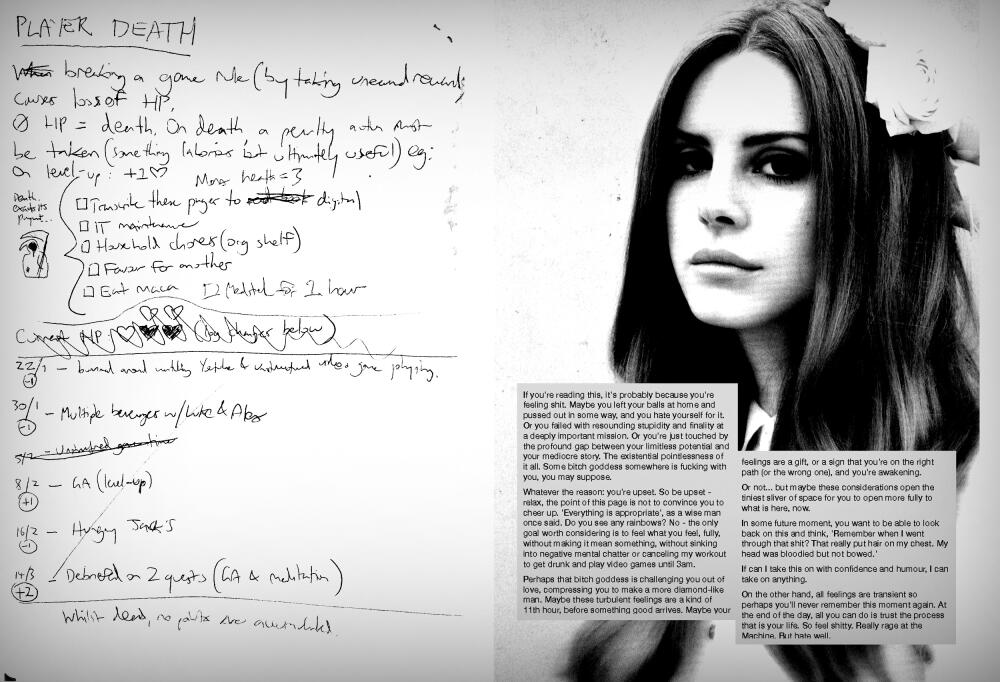 PLAYER DEATH
breaking a game rule (by taking unearned rewards)
causes loss of HP.
0 HP = death. On death a penalty action must
be taken (something laborious but ultimately useful) eg:
On level-up: +1♡
Max health = 3
Death
exacts its
payment...
☐ Transcribe these pages to digital
☐ IT maintenance
☐ Household chores (org shelf)
☐ Favour for another
☐ Eat maca ☐ Meditate for 1 hour
Current HP: (log changes below)
22/1 — around watching Youtube & unstructured video game playing.
-1
30/1 — Multiple beverages w/ Luke & Alex
-1
8/2 — GA (level-up)
+1
16/2 — Hungry Jack's
-1
14/3 — Debriefed on 2 quests (GA & meditation)
+2
Whilst dead, no points are accumulated.
If you're reading this, it's probably because you're
feeling shit. Maybe you left your balls at home and
pussed out in some way, and you hate yourself for it.
Or you failed with resounding stupidity and finality at
a deeply important mission. Or you're just touched by
the profound gap between your limitless potential and
your mediocre story. The existential pointlessness of
it all. Some bitch goddess somewhere is fucking with
you, you may suppose.
Whatever the reason: you're upset. So be upset -
relax, the point of this page is not to convince you to
cheer up. 'Everything is appropriate', as a wise man
once said. Do you see any rainbows? No - the only
goal worth considering is to feel what you feel, fully,
without making it mean something, without sinking
into negative mental chatter or canceling my workout
to get drunk and play video games until 3am.
Perhaps that bitch goddess is challenging you out of
love, compressing you to make a more diamond-like
man. Maybe these turbulent feelings are a kind of
11th hour, before something good arrives. Maybe your
feelings are a gift, or a sign that you're on the right
path (or the wrong one), and you're awakening.
Or not... but maybe these considerations open the
tiniest sliver of space for you to open more fully to
what is here, now.
In some future moment, you want to be able to look
back on this and think, 'Remember when I went
through that shit? That really put hair on my chest. My
head was bloodied but not bowed.'
If can I take this on with confidence and humour, I can
take on anything.
On the other hand, all feelings are transient so
perhaps you'll never remember this moment again. At
the end of the day, all you can do is trust the process
that is your life. So feel shitty. Really rage at the
Machine. But hate well.